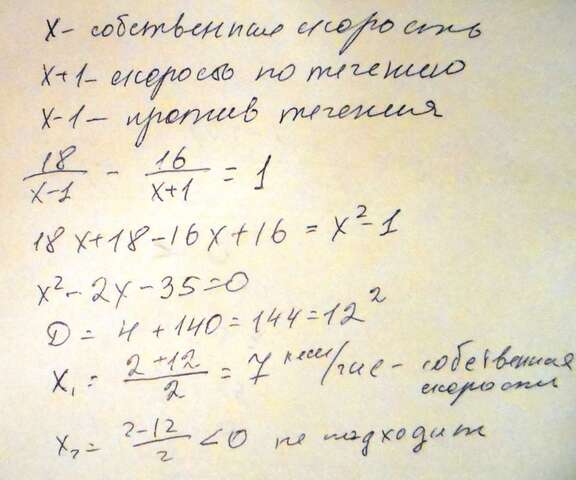 x - собственная скорость
x+1 - скорость по течению
x-1 - против течения
18/(x-1) - 16/(x+1) = 1
18x+18-16x+16 = x²-1
x²-2x-35=0
D = 4+140=144=12²
x₁ = (2+12)/2 = 7 км/час - собственная скорость
x₂ = (2-12)/2 <0 не подходит